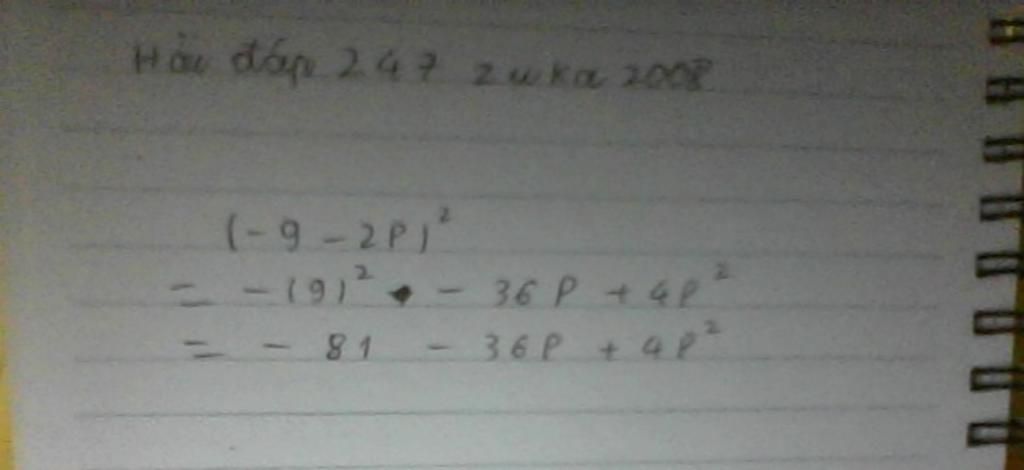 Hỏi đáp 247 zuka 2008
(-9 - 2P)²
= -(9)² - 36P + 4P²
= - 81 - 36P + 4P²